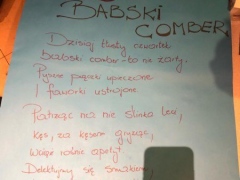 BABSKI
COMBER
Dzisiaj tłusty czwartek
babski comber - to nie żarty.
Pyszne pączki upieczone
I faworki ustrojone
Patrząc na nie ślinka leci,
Kęs, za kęsem gryząc,
Wciąż rośnie apetyt
Delektujmy się smakiem